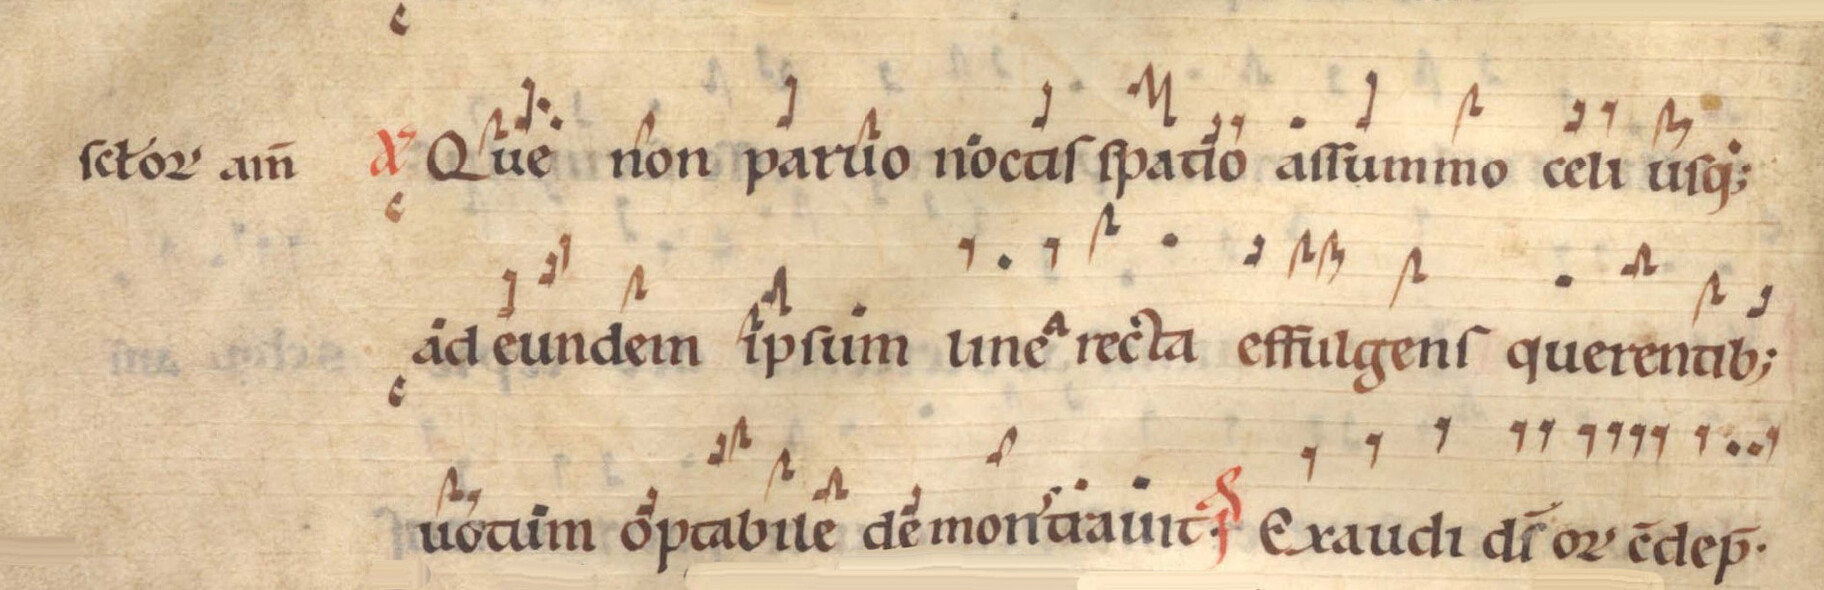 sctoꝝ am̄ Que non paruo noctis spatio assummo celi usq;
ad eundem ipsum linea recta effulgens querentib;
uotum optabile demonstrauit; Exaudi ds̄ or c̄dep̄.